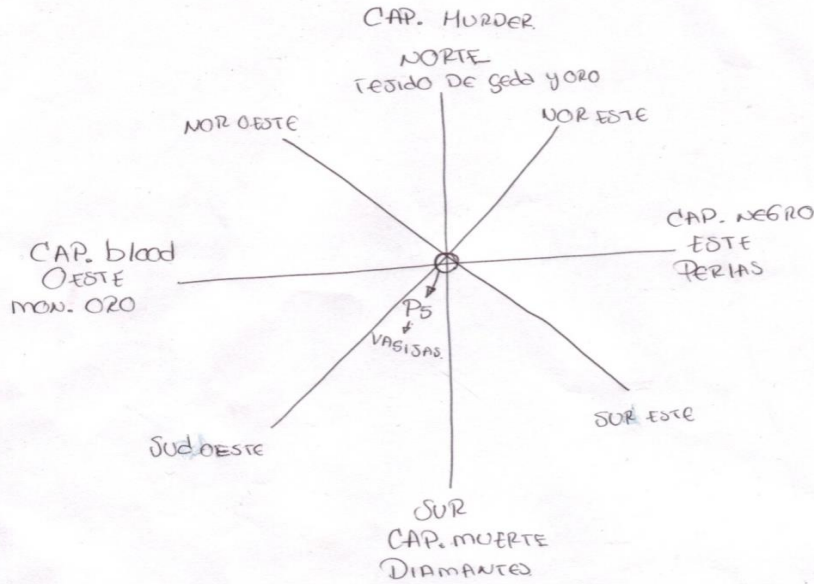 CAP. MURDER
NORTE
TEJIDO DE SEDA Y ORO
NOR OESTE
NOR ESTE
CAP. NEGRO
ESTE
PERlAS
CAP. blood
OESTE
MON. ORO
P5
VASIJAS.
SUR ESTE
SUDOESTE
SUR
CAP. MUERTE
DIAMANTES